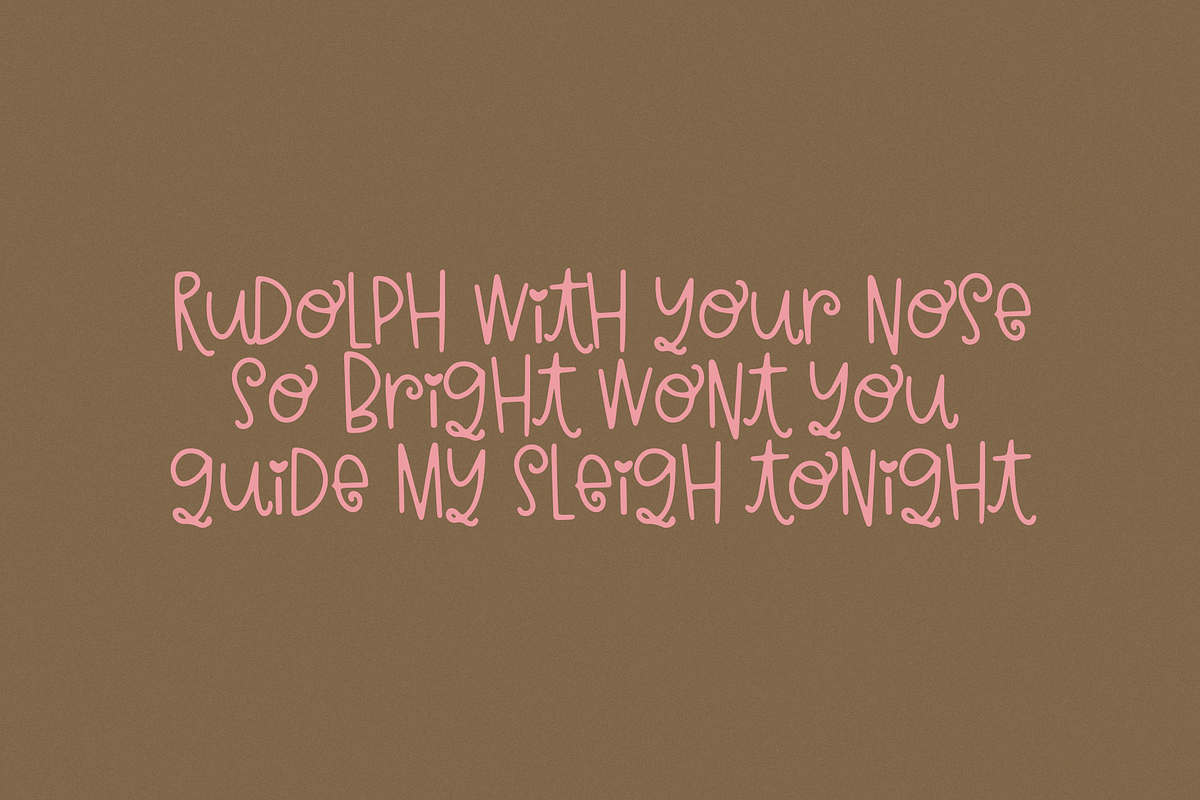 Rudolph with your nose
so bright wont you
guide my sleigh tonight